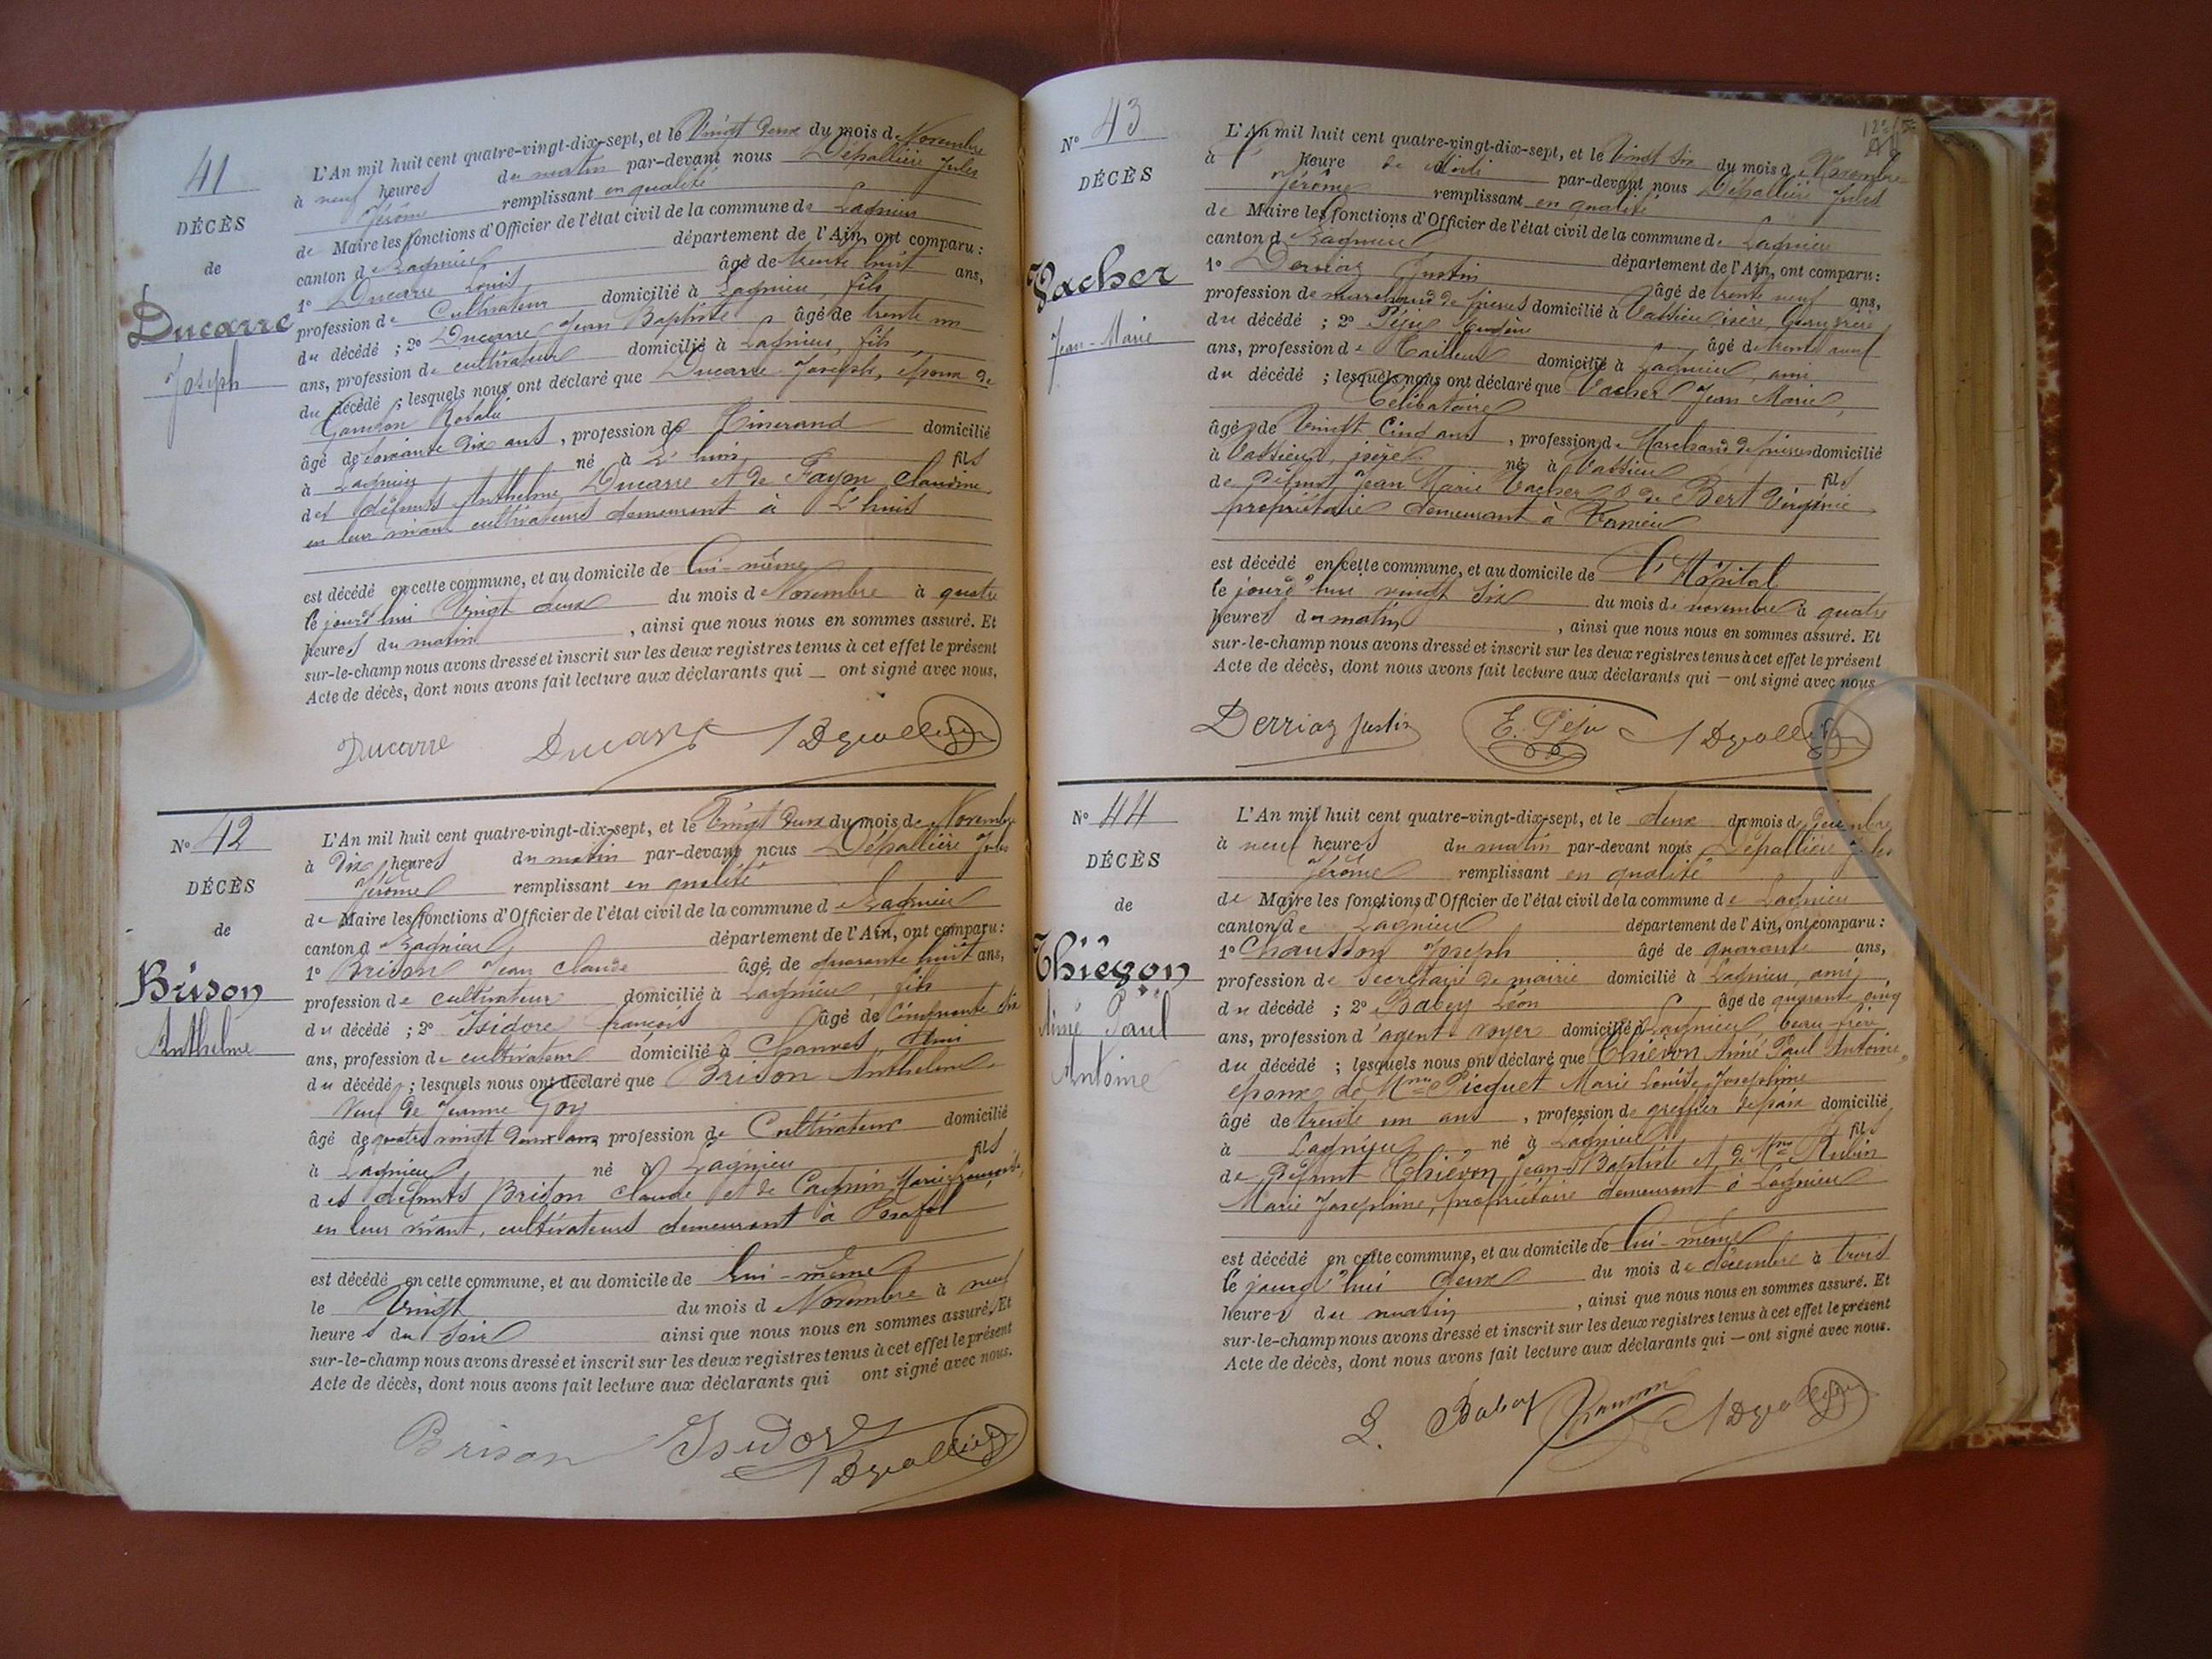 41
DÉCÈS
de
Ducarre
Joseph
L'An mil huit cent quatre-vingt-dix-sept, et le Vingt deux du mois de Novembre
à neuf heures du matin par-devant nous Dépallière Jules
Jérôme remplissant en qualité
de Maire les fonctions d'Officier de l'état civil de la commune de Lagnieu
canton de Lagnieu département de l'Ain, ont comparu :
1° Ducarre Louis âgé de trente huit ans,
profession de Cultivateur domicilié à Lagnieu, fils
du décédé ; 2° Ducarre Jean Baptiste âgé de trente un
ans, profession de cultivateur domicilié à Lagnieu, fils
du décédé ; lesquels nous ont déclaré que Ducarre Joseph, époux de
Rosalie
âgé de soixante dix ans, profession de domicilié
à Lagnieu né à L'huis fils
des défunts Anthelme Ducarre et de Fayon Claudine
en leur vivant cultivateurs demeurant à L'huis
est décédé en cette commune, et au domicile de lui-même
le jourd'hui Vingt deux du mois de Novembre à quatre
heures du matin, ainsi que nous nous en sommes assuré. Et
sur-le-champ nous avons dressé et inscrit sur les deux registres tenus à cet effet le présent
Acte de décès, dont nous avons fait lecture aux déclarants qui — ont signé avec nous.
Ducarre Ducarre
N° 42
DÉCÈS
de
Brison
Anthelme
L'An mil huit cent quatre-vingt-dix-sept, et le Vingt deux du mois de Novembre
à Dix heures du matin par-devant nous Dépallière Jules
Jérôme remplissant en qualité
de Maire les fonctions d'Officier de l'état civil de la commune de Lagnieu
canton de Lagnieu département de l'Ain, ont comparu :
1° Brison Jean Claude âgé de quarante huit ans,
profession de cultivateur domicilié à Lagnieu, fils
du décédé ; 2° Isidore françois âgé de Cinquante six
ans, profession de cultivateur domicilié à Charves, Ami
du décédé ; lesquels nous ont déclaré que Brison Anthelme
Veuf de Jeanne Goy
âgé de quatre vingt deux ans profession de Cultivateur domicilié
à Lagnieu né à Lagnieu fils
des défunts Brison Claude et de Marie Françoise,
en leur vivant, cultivateurs demeurant à Posafol
est décédé en cette commune, et au domicile de lui-même
le Vingt du mois de Novembre à neuf
heures du soir ainsi que nous nous en sommes assuré. Et
sur-le-champ nous avons dressé et inscrit sur les deux registres tenus à cet effet le présent
Acte de décès, dont nous avons fait lecture aux déclarants qui ont signé avec nous.
Brison Isidore
N° 43
DÉCÈS
Vacher
Jean-Marie
L'An mil huit cent quatre-vingt-dix-sept, et le Vingt six du mois de Novembre
à 1 heure de Midi par-devant nous Dépallière Jules
Jérôme remplissant en qualité
de Maire les fonctions d'Officier de l'état civil de la commune de Lagnieu
canton de Lagnieu département de l'Ain, ont comparu :
1° Derriaz Justin âgé de trente neuf ans,
profession de marchand de pierres domicilié à Vassieu isère,
du décédé ; 2° Péju âgé de trente neuf
ans, profession de Tailleur domicilié à Lagnieu, ami
du décédé ; lesquels nous ont déclaré que Vacher Jean Marie,
Célibataire
âgé de Vingt Cinq ans, profession de Marchand de pierres domicilié
à Vassieu, isère né à Vassieu fils
de défunt Jean Marie Vacher & de Bert Virginie
propriétaire demeurant à
est décédé en cette commune, et au domicile de l'Hôpital
le jourd'hui vingt six du mois de novembre à quatre
heures du matin, ainsi que nous nous en sommes assuré. Et
sur-le-champ nous avons dressé et inscrit sur les deux registres tenus à cet effet le présent
Acte de décès, dont nous avons fait lecture aux déclarants qui — ont signé avec nous
Derriaz Justin E. Péju
N° 44
DÉCÈS
de
Thiévon
Aimé Paul
Antoine
L'An mil huit cent quatre-vingt-dix-sept, et le deux du mois de décembre
à neuf heures du matin par-devant nous Dépallière Jules
Jérôme remplissant en qualité
de Maire les fonctions d'Officier de l'état civil de la commune de Lagnieu
canton de Lagnieu département de l'Ain, ont comparu :
1° Chausson Joseph âgé de quarante ans,
profession de Secrétaire de mairie domicilié à Lagnieu, ami
du décédé ; 2° Babey Léon âgé de quarante cinq
ans, profession d'agent-voyer domicilié à Lagnieu, beau-frère
du décédé ; lesquels nous ont déclaré que Thiévon Aimé Paul Antoine
époux de Mme Picquet Marie Louise Joséphine
âgé de trente un ans, profession de greffier de paix domicilié
à Lagnieu né à Lagnieu fils
de défunt Thiévon Jean-Baptiste et de Mme Rubin
Marie Joséphine, propriétaire demeurant à Lagnieu
est décédé en cette commune, et au domicile de lui-même
le jourd'hui deux du mois de décembre à trois
heures du matin, ainsi que nous nous en sommes assuré. Et
sur-le-champ nous avons dressé et inscrit sur les deux registres tenus à cet effet le présent
Acte de décès, dont nous avons fait lecture aux déclarants qui — ont signé avec nous.
L. Babey